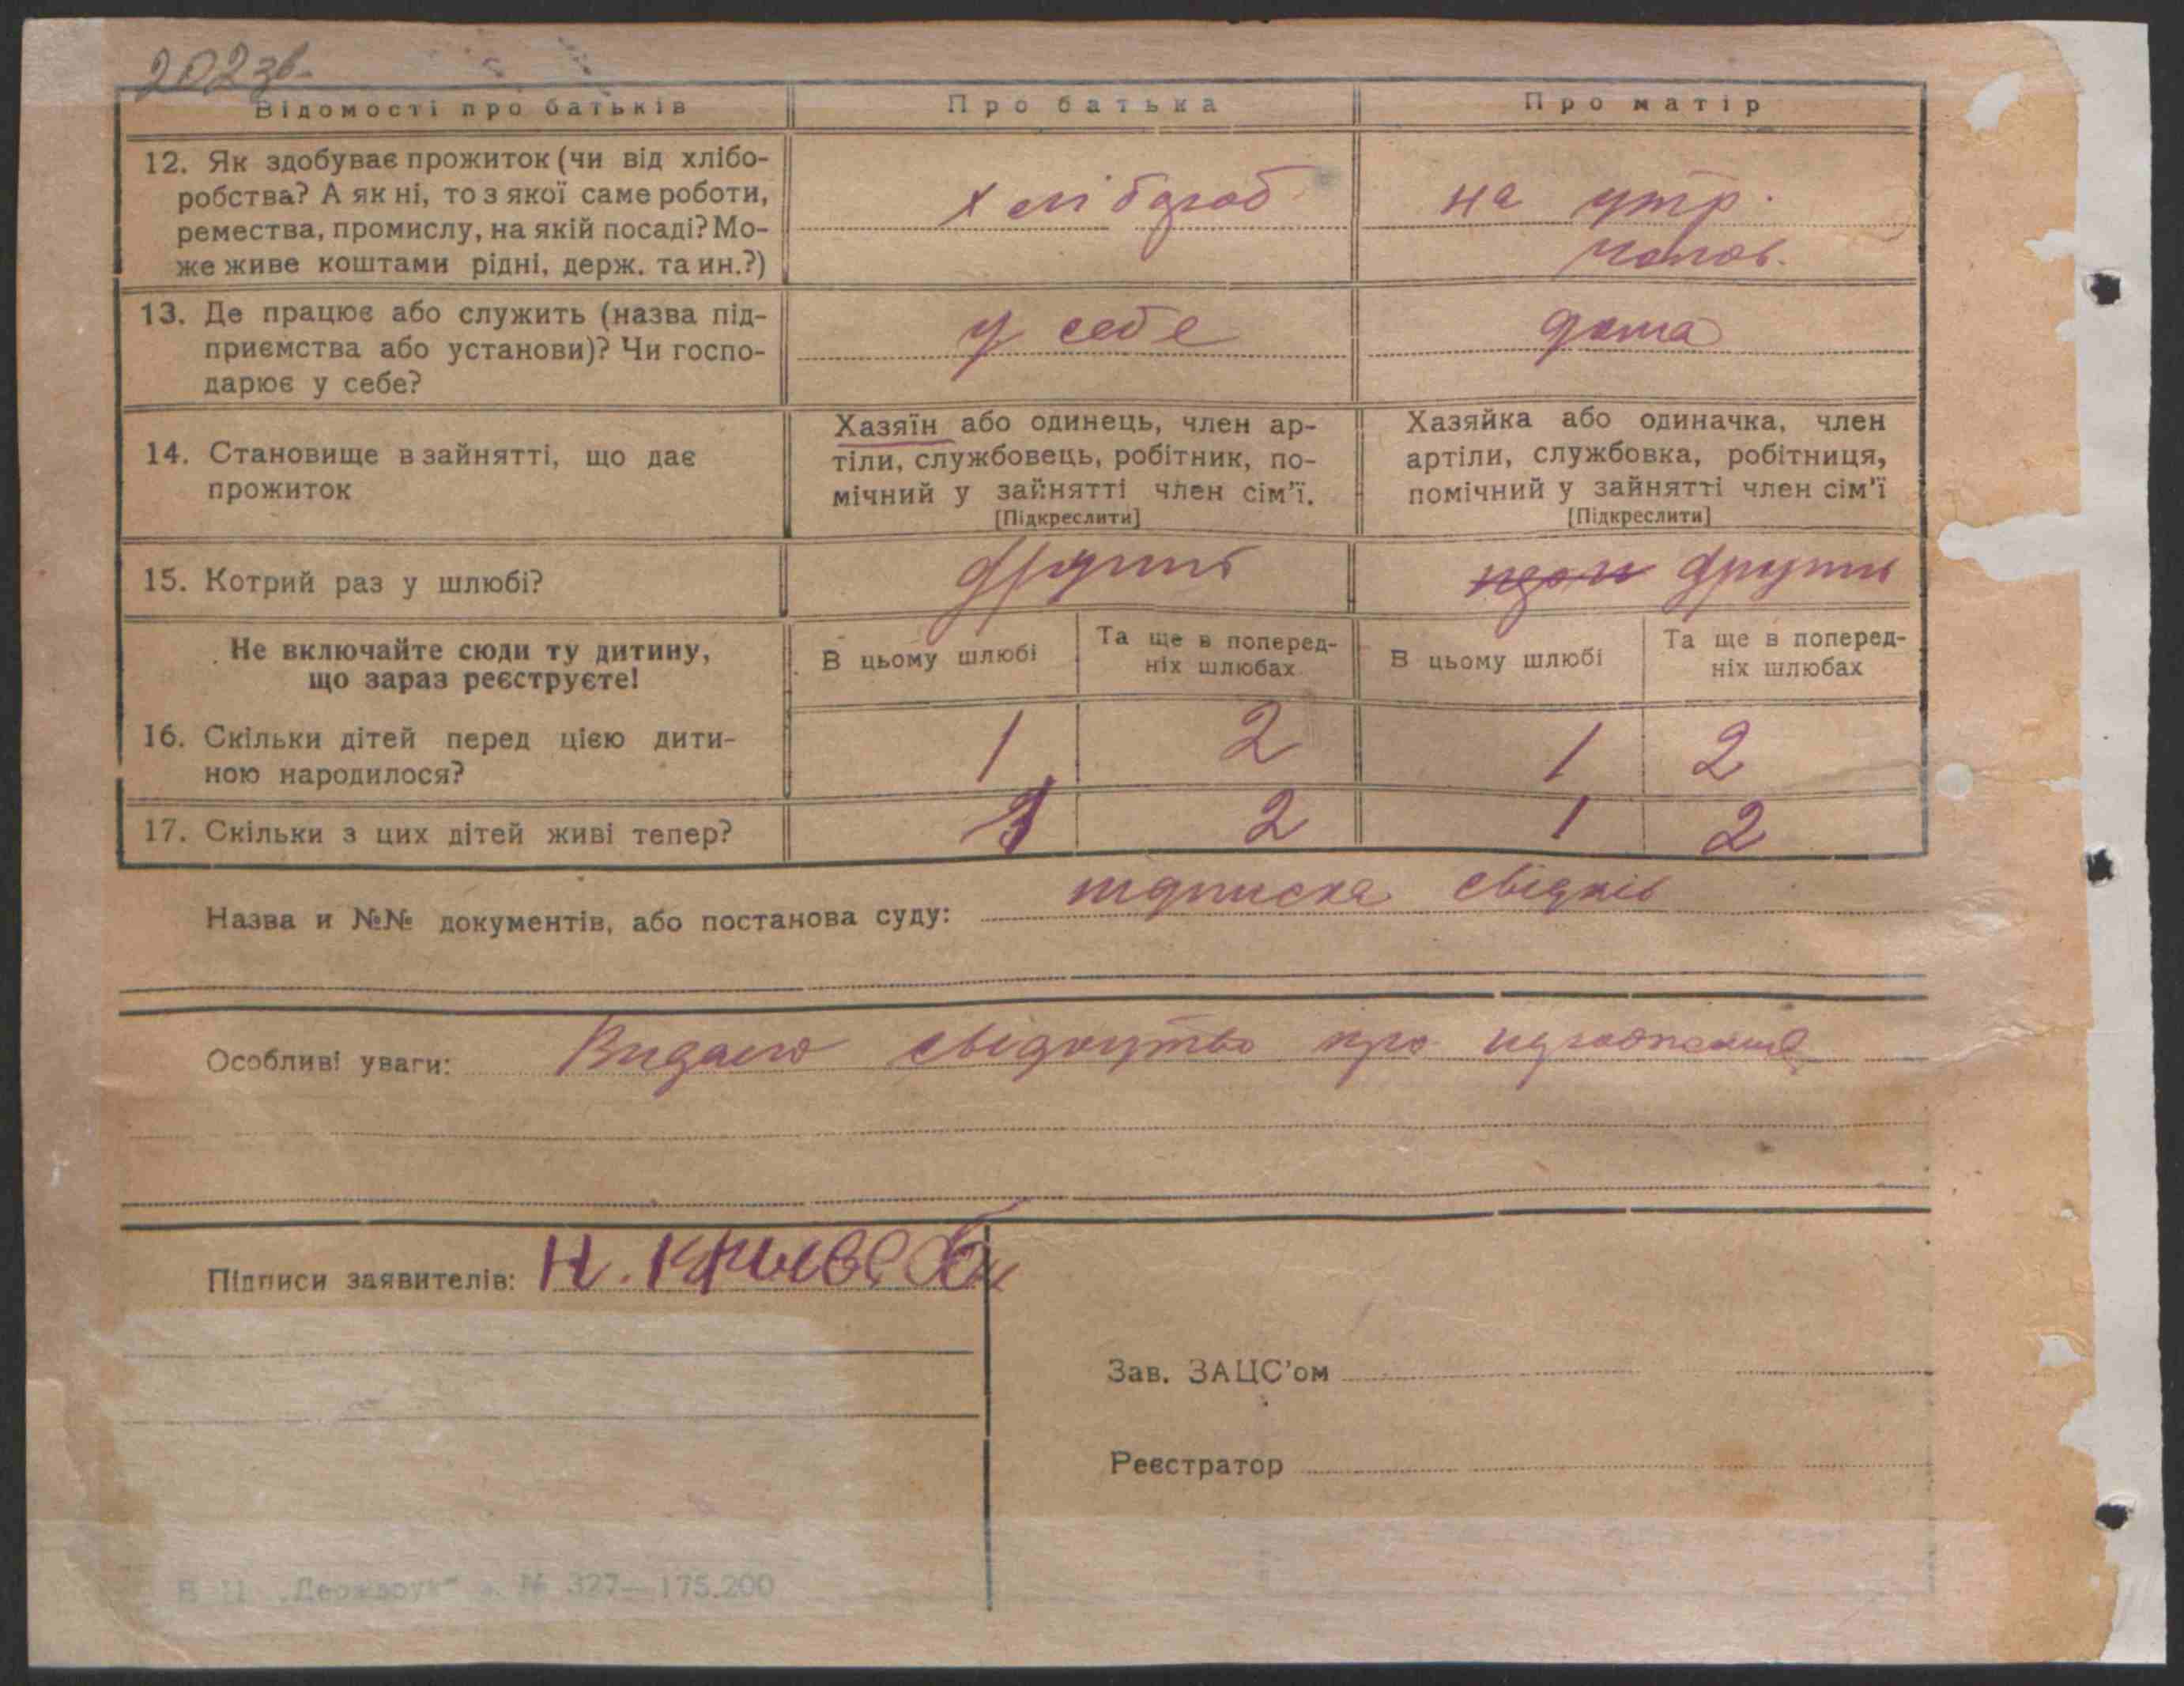 202зв.
Відомості про батьків
Про батька
Про матір
12. Як здобуває прожиток (чи від хлібо-
робства? А як ні, то з якої саме роботи,
ремества, промислу, на якій посаді? Мо-
же живе коштами рідні, держ. та ин.?)
хлібороб
на утр.
чолов.
13. Де працює або служить (назва під-
приємства або установи)? Чи госпо-
дарює у себе?
у себе
дома
14. Становище в зайнятті, що дає
прожиток
Хазяїн або одинець, член ар-
тіли, службовець, робітник, по-
мічний у зайнятті член сім'ї.
[Підкреслити]
Хазяйка або одиначка, член
артіли, службовка, робітниця,
помічний у зайнятті член сім'ї
[Підкреслити]
15. Котрий раз у шлюбі?
другий
другий
Не включайте сюди ту дитину,
що зараз реєструєте!
В цьому шлюбі
Та ще в поперед-
ніх шлюбах
В цьому шлюбі
Та ще в поперед-
ніх шлюбах
16. Скільки дітей перед цією дити-
ною народилося?
1 2 1 2
17. Скільки з цих дітей живі тепер?
1 2 1 2
Назва и №№ документів, або постанова суду: підписка свідків
Особливі уваги: Видано свідоцтво про
Підписи заявителів: Н.
Зав. ЗАЦС'ом
Реєстратор
В Ц „Держдрук“ з. № 327—175.200